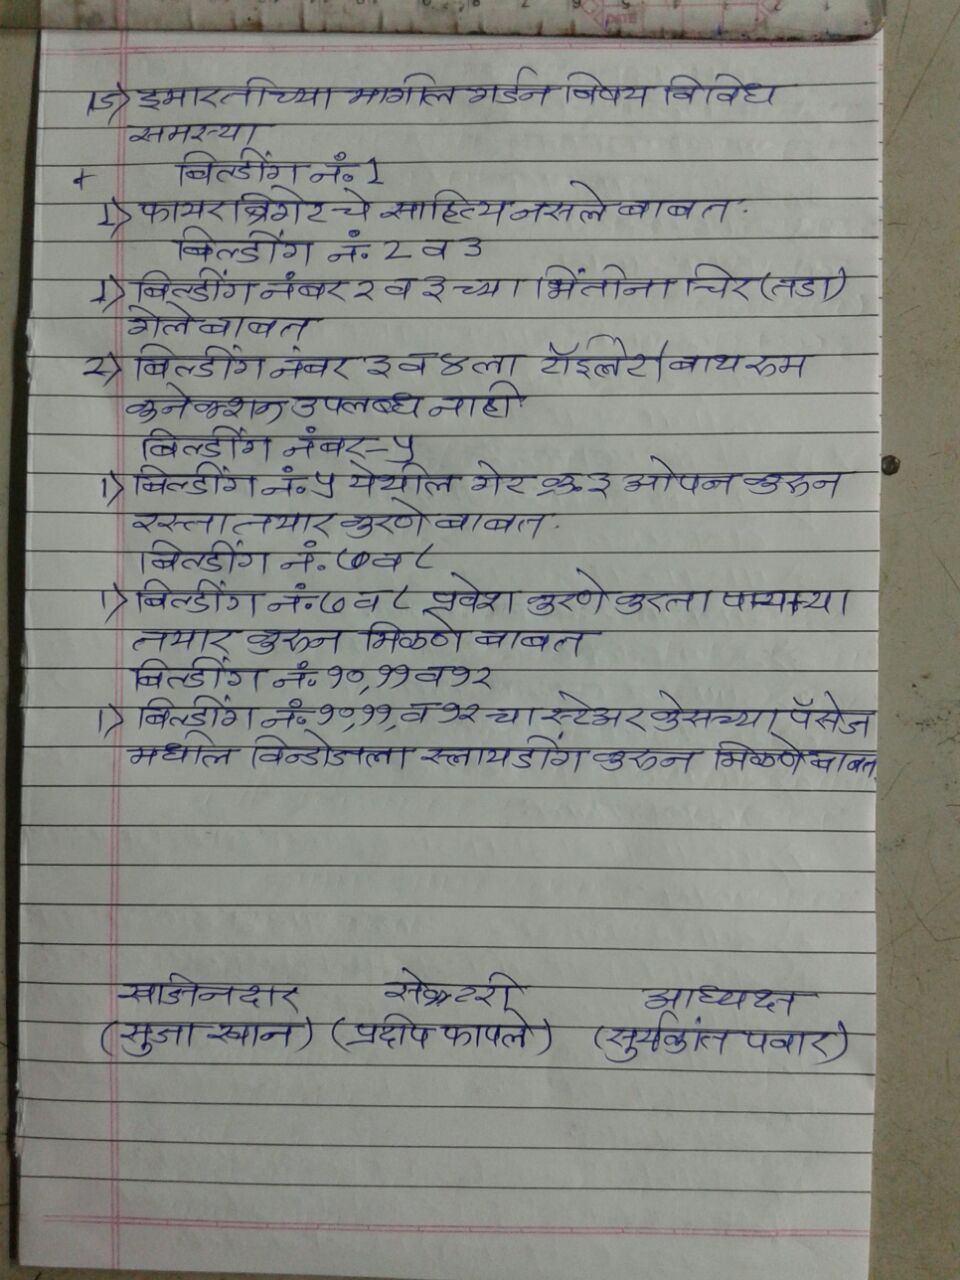 15) इमारतीच्या मागील गर्डन विषय विविध
समस्या
+ बिल्डींग नं. 1
1) फायरब्रिगेटचे साहित्य नसले बाबत.
बिल्डींग नं. 2 व 3
1) बिल्डींग नंबर २ व ३ च्या भिंतीना चिर (तडा)
गेले बाबत
2) बिल्डींग नंबर ३ व ४ ला टॉईलेट/बाथरुम
कनेक्शन उपलब्ध नाही
बिल्डींग नंबर-५
1) बिल्डींग नं. ५ येथील गेट क्र. ३ ओपन करुन
रस्ता तयार करणे बाबत.
बिल्डींग नं. ७ व ८
1) बिल्डींग नं. ७ व ८ प्रवेश करणे करता पायऱ्या
तयार करुन मिळणे बाबत
बिल्डींग नं. १०, ११ व १२
1) बिल्डींग नं. १०, ११, व १२ चा स्टेअर केसच्या पॅसेज
मधील विन्डोजला स्लायडींग करुन मिळणे बाबत.
खजिनदार सेक्रटरी अध्यक्ष
(सुजा खान) (प्रदीप फापले) (सुर्यकांत पवार)